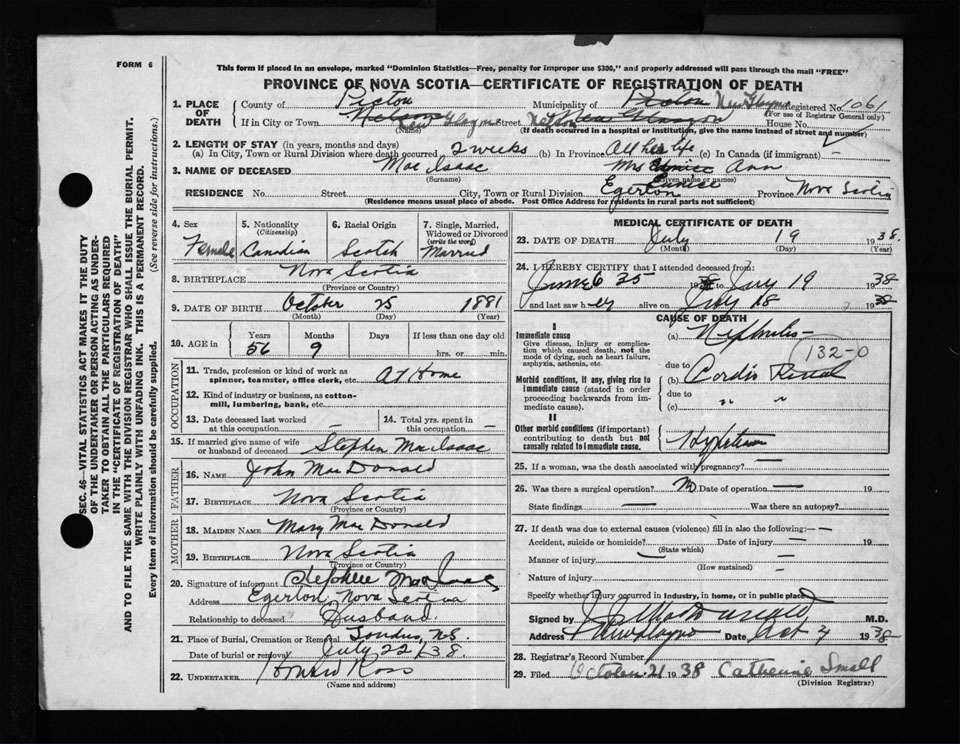 FORM 6
This form if placed in an envelope, marked "Dominion Statistics—Free, penalty for improper use $300," and properly addressed will pass through the mail "FREE"
PROVINCE OF NOVA SCOTIA—CERTIFICATE OF REGISTRATION OF DEATH
1. PLACE OF DEATH
County of Pictou Municipality of Pictou New Glasgow Registered No. 1061
(For use of Registrar General only)
If in City or Town New Glasgow Street House No.
(Name) (If death occurred in a hospital or institution, give the name instead of street and number)
2. LENGTH OF STAY (in years, months and days)
(a) In City, Town or Rural Division where death occurred 2 weeks (b) In Province All her life (c) In Canada (if immigrant)
3. NAME OF DECEASED Mac Isaac Mrs Eunice Ann
(Surname) (Given name or names)
RESIDENCE No. Street City, Town or Rural Division Egerton Province Nova Scotia
(Residence means usual place of abode. Post Office Address for residents in rural parts not sufficient)
4. Sex Female
5. Nationality (Citizenship) Canadian
6. Racial Origin Scotch
7. Single, Married, Widowed or Divorced (write the word) Married
8. BIRTHPLACE Nova Scotia
(Province or Country)
9. DATE OF BIRTH October 25 1881
(Month) (Day) (Year)
10. AGE in Years Months Days If less than one day old
56 9 hrs. or min.
OCCUPATION
11. Trade, profession or kind of work as spinner, teamster, office clerk, etc. At Home
12. Kind of industry or business, as cotton-mill, lumbering, bank, etc.
13. Date deceased last worked at this occupation —
14. Total yrs. spent in this occupation —
15. If married give name of wife or husband of deceased Stephen MacIsaac
FATHER
16. NAME John MacDonald
17. BIRTHPLACE Nova Scotia
(Province or Country)
MOTHER
18. MAIDEN NAME Mary MacDonald
19. BIRTHPLACE Nova Scotia
(Province or Country)
20. Signature of informant Stephen MacIsaac
Address Egerton, Nova Scotia
Relationship to deceased Husband
21. Place of Burial, Cremation or Removal N.S.
Date of burial or removal July 22/38.
22. UNDERTAKER Howard Ross
(Name and address)
MEDICAL CERTIFICATE OF DEATH
23. DATE OF DEATH July 19 1938.
(Month) (Day) (Year)
24. I HEREBY CERTIFY that I attended deceased from:
June 25 1938 to July 19 1938
and last saw her alive on July 18 1938
CAUSE OF DEATH
I
Immediate cause (a) Nephritis
Give disease, injury or complication which caused death, not the mode of dying, such as heart failure, asphyxia, asthenia, etc.
132-0
due to
(b) Cordis Renal
Morbid conditions, if any, giving rise to immediate cause (stated in order proceeding backwards from immediate cause).
due to
(c) " "
II
Other morbid conditions (if important) contributing to death but not causally related to immediate cause.
25. If a woman, was the death associated with pregnancy? —
26. Was there a surgical operation? No Date of operation — 19
State findings — Was there an autopsy?
27. If death was due to external causes (violence) fill in also the following:— —
Accident, suicide or homicide? Date of injury — 19
(State which)
Manner of injury —
(How sustained)
Nature of injury —
Specify whether injury occurred in industry, in home, or in public place
Signed by J. MacDonald M.D.
Address New Glasgow Date Oct 1938
28. Registrar's Record Number
29. Filed October 21 1938 Catherine Small
(Division Registrar)
SEC. 46—VITAL STATISTICS ACT MAKES IT THE DUTY
OF THE UNDERTAKER OR PERSON ACTING AS UNDER-
TAKER TO OBTAIN ALL THE PARTICULARS REQUIRED
IN THE "CERTIFICATE OF REGISTRATION OF DEATH"
AND TO FILE THE SAME WITH THE DIVISION REGISTRAR WHO SHALL ISSUE THE BURIAL PERMIT.
WRITE PLAINLY WITH UNFADING INK. THIS IS A PERMANENT RECORD.
Every item of information should be carefully supplied. (See reverse side for instructions.)